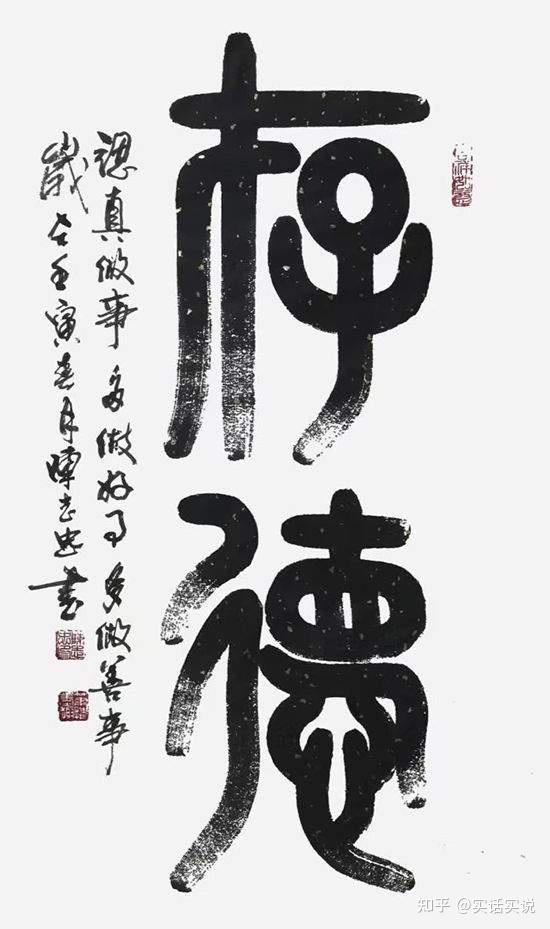 存德
認真做事多做好事多做善事
歲在壬寅春月陳志忠書
知乎 @实话实说